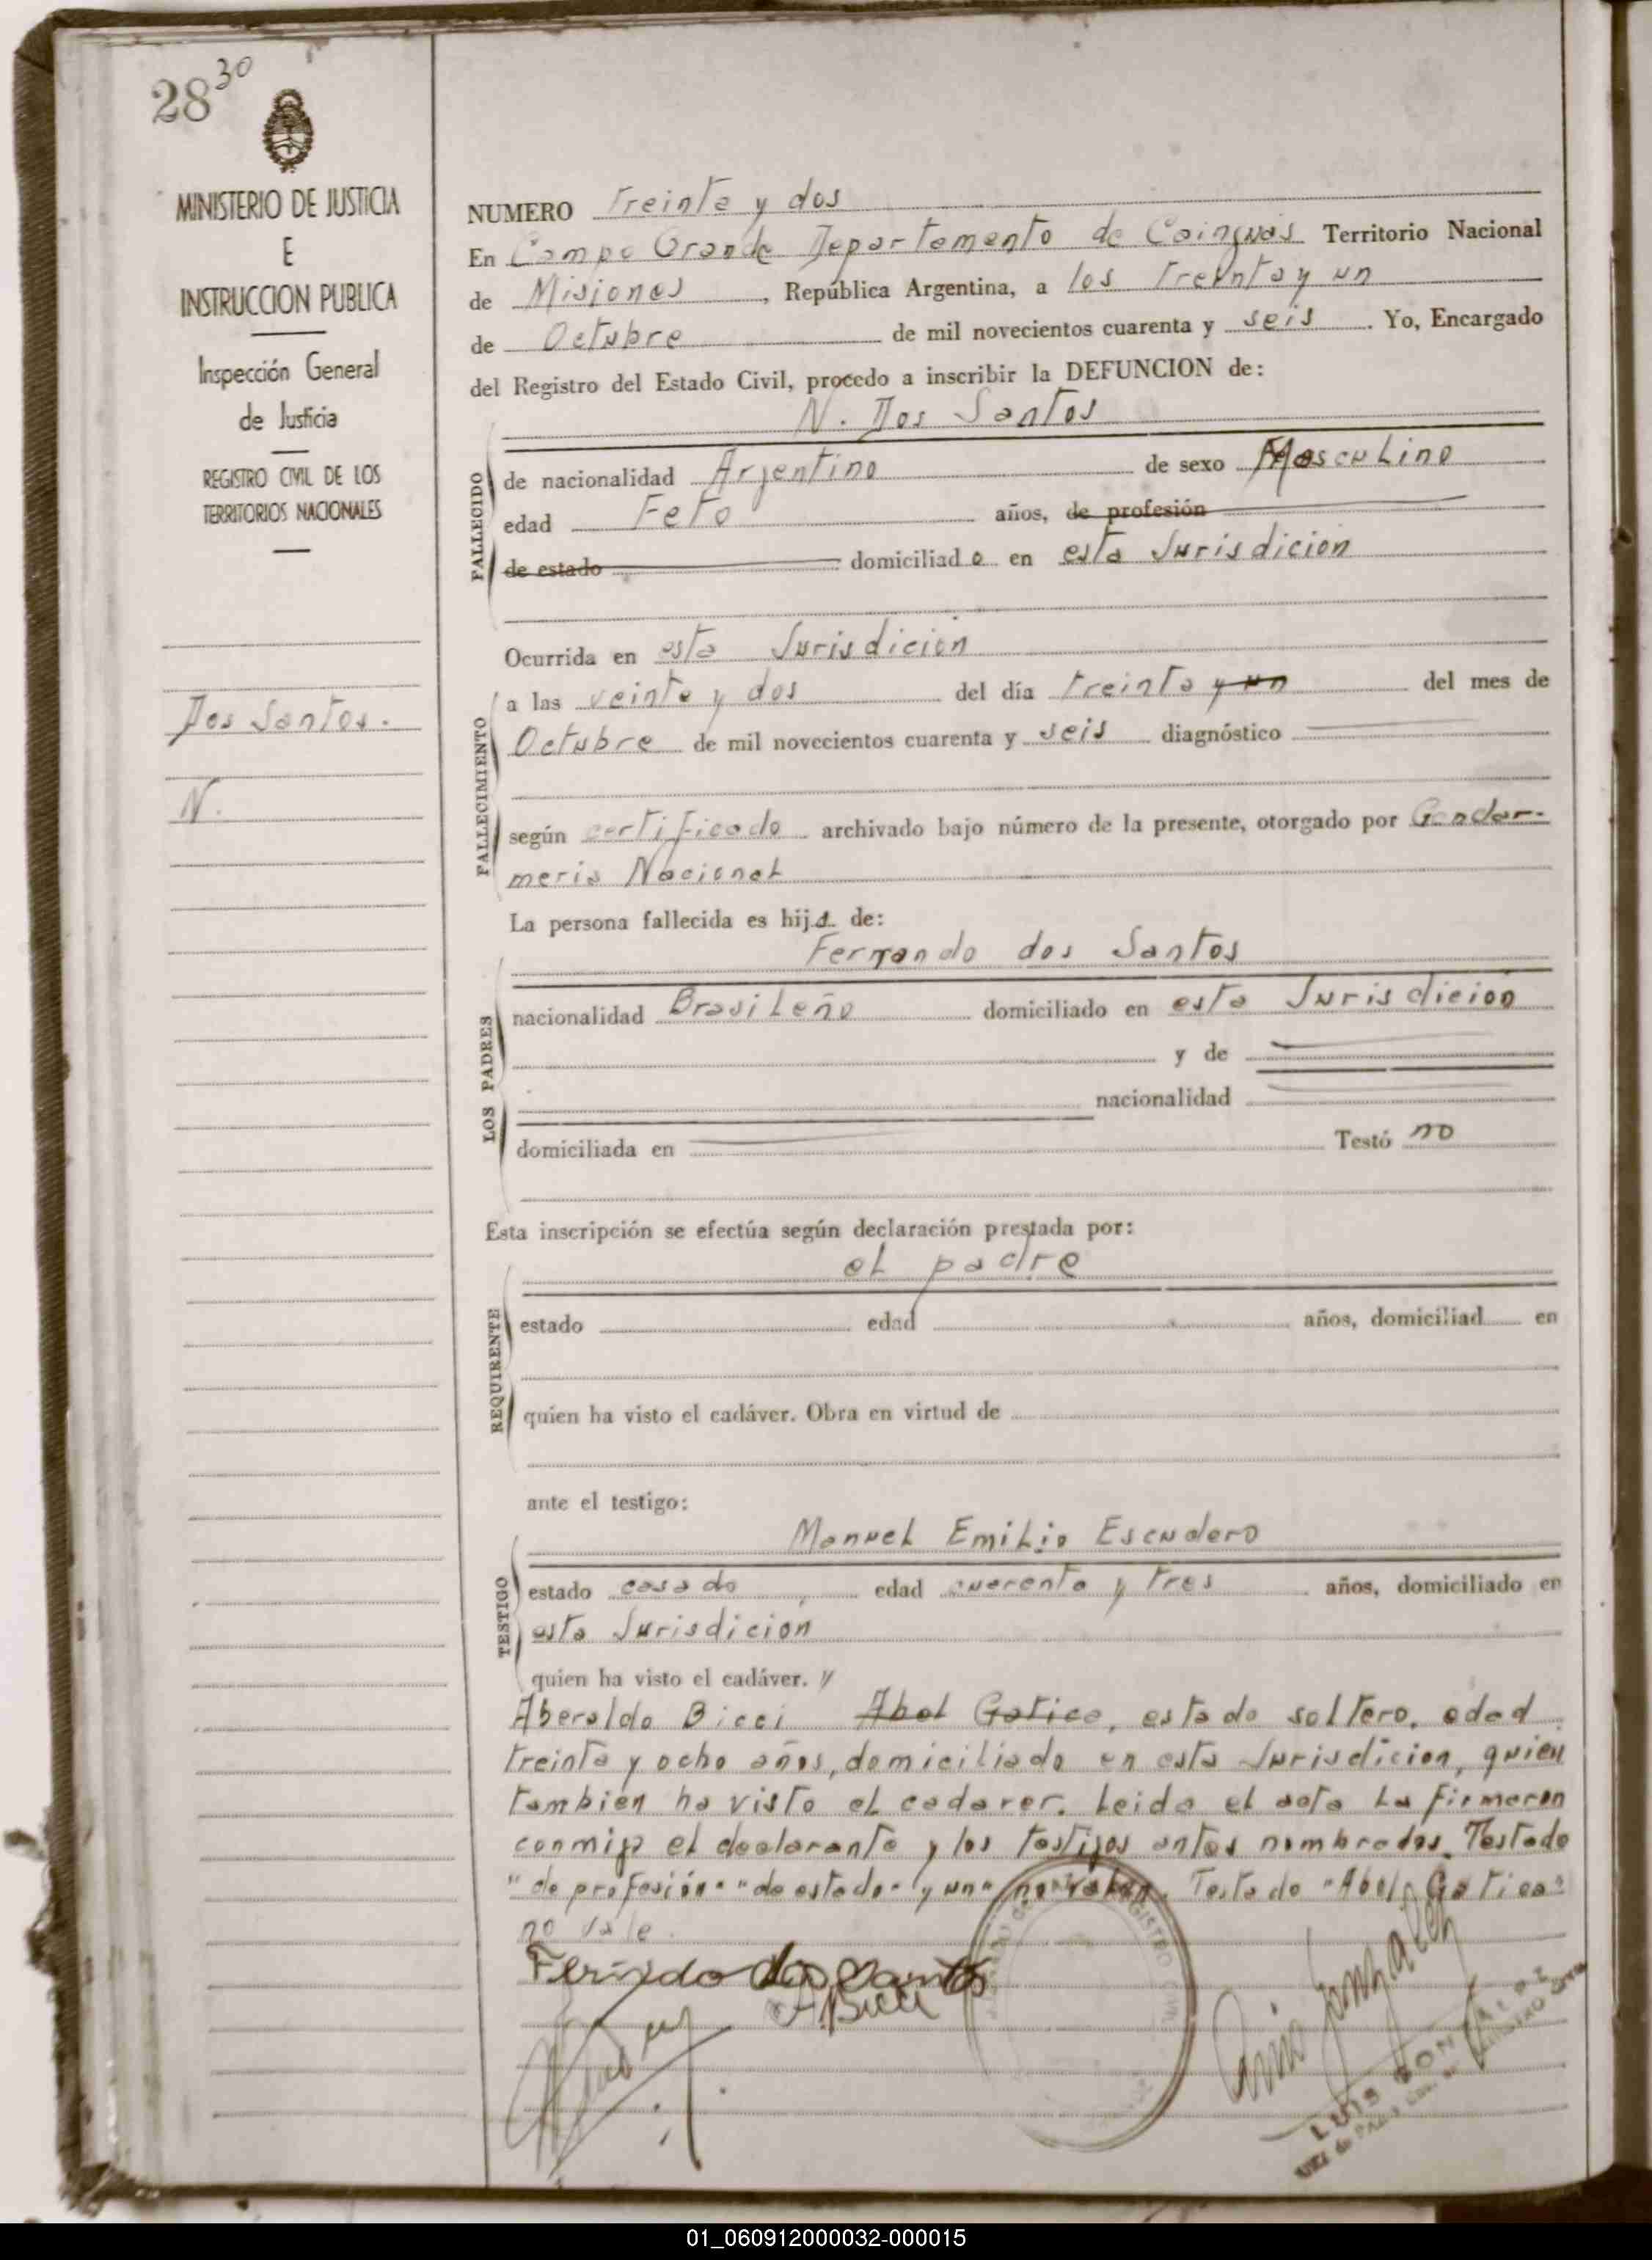 28 30
MINISTERIO DE JUSTICIA
E
INSTRUCCION PUBLICA
Inspección General
de Justicia
REGISTRO CIVIL DE LOS
TERRITORIOS NACIONALES
Dos Santos.
N.
NUMERO Treinta y dos
En Campo Grande Departamento de Cainguas Territorio Nacional
de Misiones, República Argentina, a los treinta y un
de Octubre de mil novecientos cuarenta y seis. Yo, Encargado
del Registro del Estado Civil, procedo a inscribir la DEFUNCION de:
N. Dos Santos
FALLECIDO
de nacionalidad Argentino de sexo Masculino
edad Feto años, de profesión
de estado domiciliado en esta Jurisdicion
Ocurrida en esta Jurisdicion
FALLECIMIENTO
a las veinte y dos del día treinta y un del mes de
Octubre de mil novecientos cuarenta y seis diagnóstico
según certificado archivado bajo número de la presente, otorgado por Gendar-
meria Nacional
La persona fallecida es hijo de:
LOS PADRES
Fernando dos Santos
nacionalidad Brasileño domiciliado en esta Jurisdicion
y de
nacionalidad
domiciliada en Testó no
Esta inscripción se efectúa según declaración prestada por:
REQUIRENTE
el padre
estado edad años, domiciliad en
quien ha visto el cadáver. Obra en virtud de
ante el testigo:
TESTIGO
Manuel Emilio Escudero
estado casado edad cuarenta y tres años, domiciliado en
esta Jurisdicion
quien ha visto el cadáver. //
Aberaldo Bicci Abel Gatica, estado soltero, edad
treinta y ocho años, domiciliado en esta Jurisdicion, quien
tambien ha visto el cadaver. Leida el acta la firmaron
conmigo el declarante y los testigos antes nombrados. Testado
"de profesión" "de estado" "y un" no valen. Testado "Abel Gatica"
no vale.
Fernando dos Santos
ABicci
Luis Gonzalez
LUIS GONZALEZ
JUEZ de PAZ
01_060912000032-000015